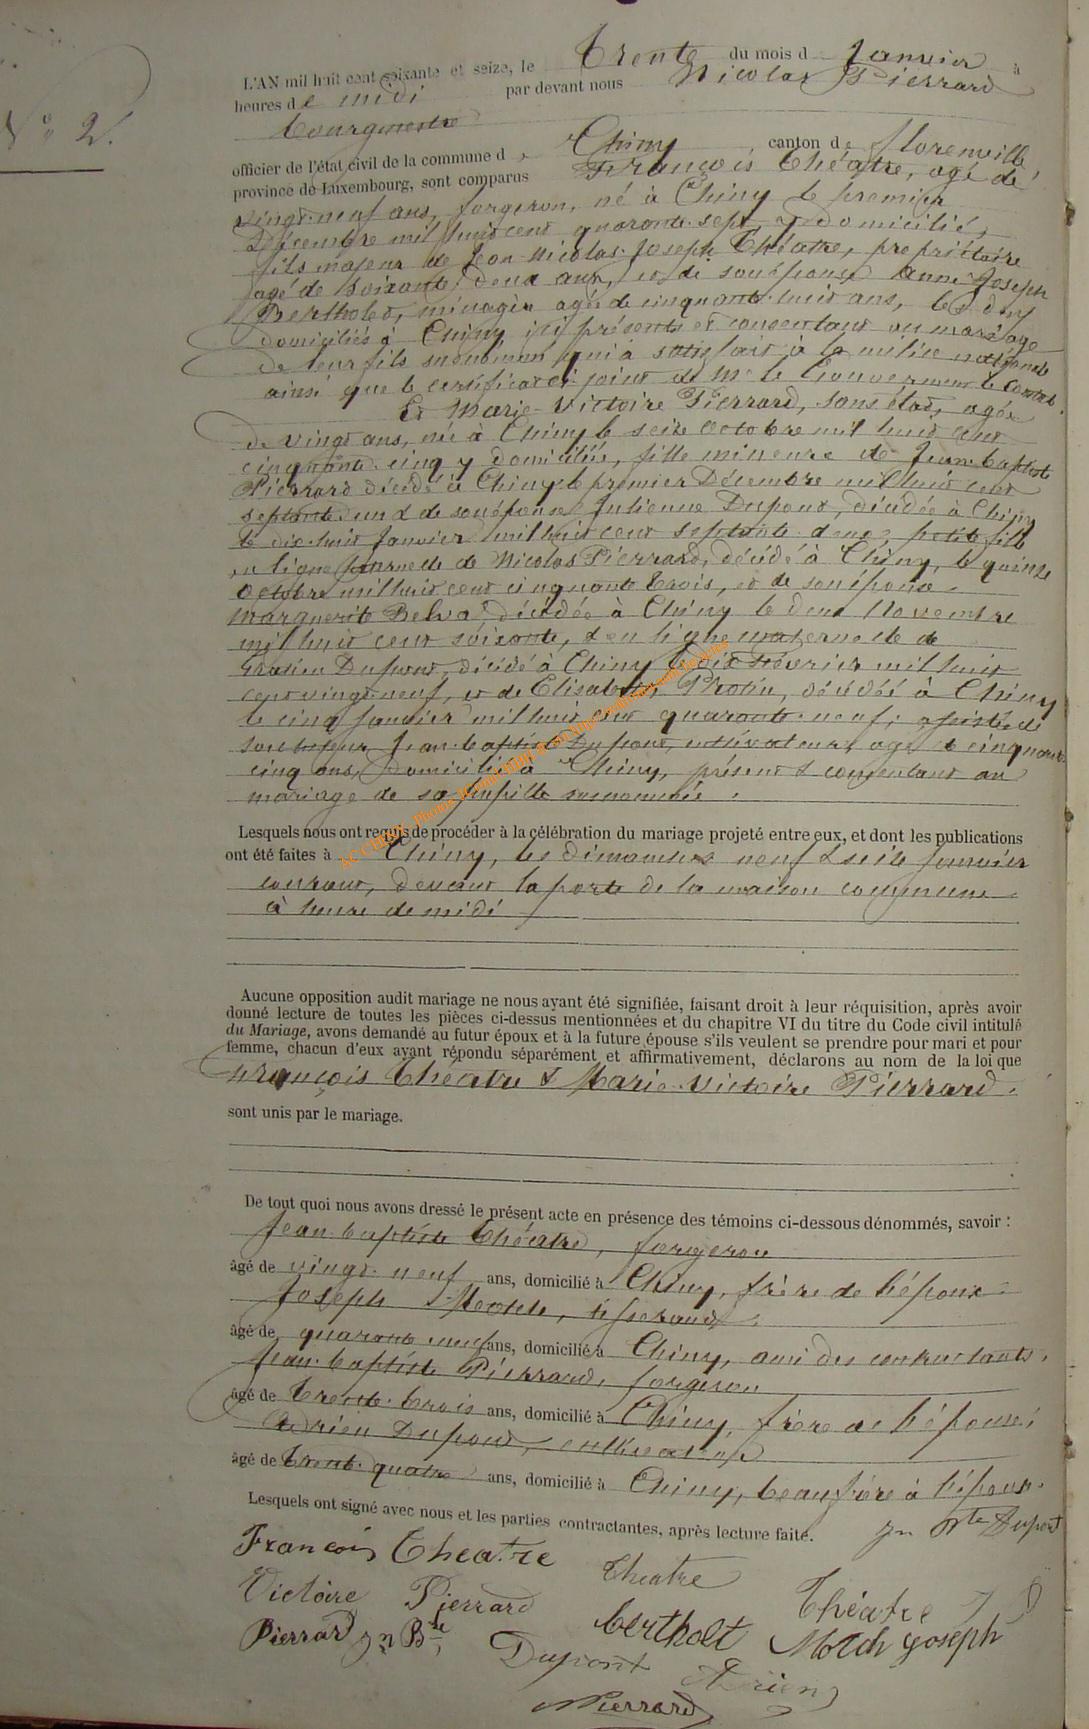 N° 2.
L'AN mil huit cent soixante et seize, le Trente du mois d Janvier à
heures de midi par devant nous Nicolas Pierrard
bourgmestre
officier de l'état civil de la commune d Chiny, canton de Florenville
province de Luxembourg, sont comparus François Théatre, agé de
vingt-neuf ans, forgeron, né à Chiny le premier
Décembre mil huit cent quarante-sept, y domicilié,
fils majeur de Jean-Nicolas-Joseph Théatre, propriétaire
agé de soixante-deux ans, et de son épouse Anne-Joseph
Bertholet, ménagère agée de cinquante-huit ans, les deux
domiciliés à Chiny, ici présents et consentant au mariage
de leur fils susnommé qui a satisfait à la milice nationale
ainsi que le certificat ci-joint de Mr le Gouverneur le constate.
Et Marie-Victoire Pierrard, sans état, agée
de vingt ans, née à Chiny le seize Octobre mil huit cent
cinquante-cinq y domiciliée, fille mineure de Jean-baptiste
Pierrard décédé à Chiny le premier Décembre mil huit cent
septante-un & de son épouse Julienne Dupont, décédée à Chiny
le dix-huit Janvier mil huit cent septante-deux, petite fille
en ligne paternelle de Nicolas Pierrard, décédé à Chiny, le quinze
Octobre mil huit cent cinquante trois, et de son épouse
Marguerite Belva, décédée à Chiny le deux Novembre
mil huit cent soixante, & en ligne maternelle de
Dupont, décédé à Chiny le dix Février mil huit
cent vingt-neuf, et de Elisabeth Protin, décédée à Chiny
le cinq Janvier mil huit cent quarante-neuf, assistée de
son tuteur Jean-baptiste Dupont, cultivateur, agé de cinquante
cinq ans, domicilié à Chiny, présent & consentant au
mariage de sa pupille susnommée.
Lesquels nous ont requis de procéder à la célébration du mariage projeté entre eux, et dont les publications
ont été faites à Chiny, les dimanches neuf & seize Janvier
courant, devant la porte de la maison commune
à heure de midi
Aucune opposition audit mariage ne nous ayant été signifiée, faisant droit à leur réquisition, après avoir
donné lecture de toutes les pièces ci-dessus mentionnées et du chapitre VI du titre du Code civil intitulé
du Mariage, avons demandé au futur époux et à la future épouse s'ils veulent se prendre pour mari et pour
femme, chacun d'eux ayant répondu séparément et affirmativement, déclarons au nom de la loi que
François Théatre & Marie-Victoire Pierrard.
sont unis par le mariage.
De tout quoi nous avons dressé le présent acte en présence des témoins ci-dessous dénommés, savoir :
Jean-baptiste Théatre, forgeron
âgé de vingt-neuf ans, domicilié à Chiny, frère de l'époux
Joseph tisserand
âgé de quarante neuf ans, domicilié à Chiny, ami des contractants,
Jean-baptiste Pierrard, forgeron
âgé de trente-trois ans, domicilié à Chiny, frère de l'épouse,
Adrien Dupont, cultivateur
âgé de trente-quatre ans, domicilié à Chiny, beaufrère à l'époux.
Lesquels ont signé avec nous et les parties contractantes, après lecture faite. Jn Bte Dupont
François Theatre Theatre
Victoire Pierrard Théatre J
Pierrard Jn Bte, bertholet Motch Joseph
Dupont Adrien
NPierrard